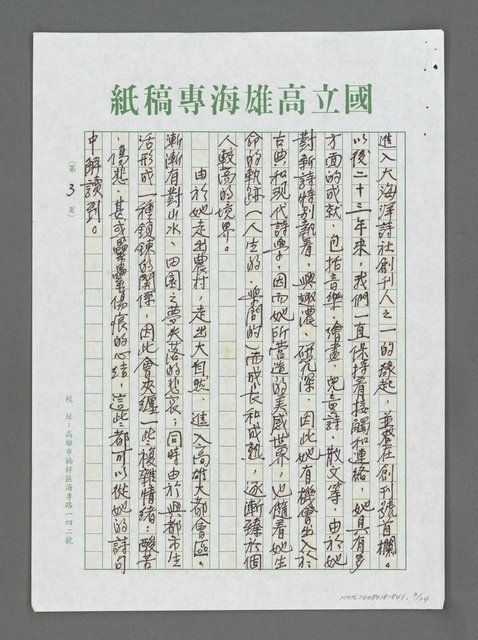 國立高雄海專稿紙
進入大海洋詩社創刊人之一的緣起，並登在創刊號首欄。
以後二十三年來，我們一直保持著接觸和連絡，她具有多
方面的成就，包括音樂、繪畫、兒童詩、散文等，由於她
對新詩特別執著，興趣濃、研究深，因此她有機會出入於
古典和現代詩學，因而她所營造的美感世界，也隨着她生
命的軌跡（人生的、學問的）而成長和成熟，逐漸臻於個
人較高的境界。
由於她走出農村，走出大自然，進入高雄大都會區。
漸漸有對山水、田園之夢失落的悲哀；同時由於與都市生
活形成一種鎖鍊的關係，因此會夾纏一些複雜情緒：酸苦
、傷悲、甚或纍纍傷痕的心結，這些都可以從她的詩句
中解讀到。
（第 3 頁）
校址：高雄市楠梓區海專路一四二號
NMTL20080181841. 3/24